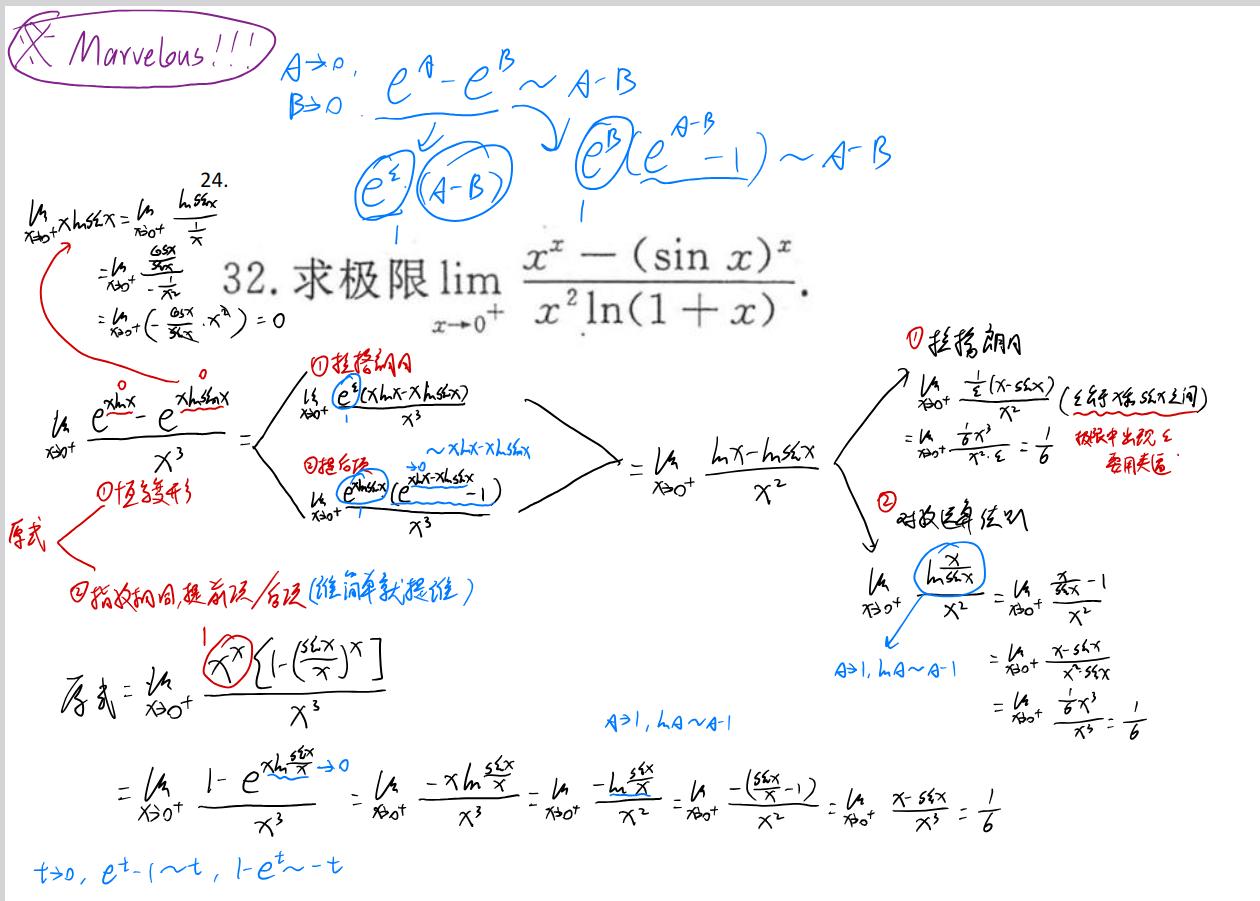 ※ Marvelous!!!
A→0,
B→0
e^A - e^B ~ A-B
e^ξ (A-B)
1
e^B (e^{A-B} -1) ~ A-B
1
24.
lim_{x→0⁺} x ln sin x = lim_{x→0⁺} \frac{ln sin x}{\frac{1}{x}}
= lim_{x→0⁺} \frac{\frac{cos x}{sin x}}{-\frac{1}{x²}}
= lim_{x→0⁺} (-\frac{cos x}{sin x} · x²) = 0
32. 求极限 lim_{x→0⁺} \frac{x^x - (sin x)^x}{x² ln(1+x)}.
lim_{x→0⁺} \frac{e^{x ln x} - e^{x ln sin x}}{x³} =
0 0
①拉格朗日
lim_{x→0⁺} \frac{e^ξ (x ln x - x ln sin x)}{x³}
1
~ x ln x - x ln sin x
②提后项
→0
lim_{x→0⁺} \frac{e^{x ln sin x} (e^{x ln x - x ln sin x} -1)}{x³}
1
= lim_{x→0⁺} \frac{ln x - ln sin x}{x²}
① 拉格朗日
lim_{x→0⁺} \frac{\frac{1}{ξ}(x - sin x)}{x²} (ξ介于x和sin x之间)
= lim_{x→0⁺} \frac{\frac{1}{6}x³}{x²·ξ} = \frac{1}{6}
极限中出现ξ
要用夹逼
②
对数运算法则
lim_{x→0⁺} \frac{ln \frac{x}{sin x}}{x²} = lim_{x→0⁺} \frac{\frac{x}{sin x} -1}{x²}
A→1, ln A ~ A-1
= lim_{x→0⁺} \frac{x - sin x}{x²·sin x}
= lim_{x→0⁺} \frac{\frac{1}{6}x³}{x³} = \frac{1}{6}
原式
①恒等变形
②指数相同,提前项/后项(谁简单就提谁)
1
原式 = lim_{x→0⁺} \frac{x^x [1-(\frac{sin x}{x})^x]}{x³}
A→1, ln A ~ A-1
= lim_{x→0⁺} \frac{1 - e^{x ln \frac{sin x}{x}}}{x³} →0 = lim_{x→0⁺} \frac{-x ln \frac{sin x}{x}}{x³} = lim_{x→0⁺} \frac{-ln \frac{sin x}{x}}{x²} = lim_{x→0⁺} \frac{-(\frac{sin x}{x} -1)}{x²} = lim_{x→0⁺} \frac{x - sin x}{x³} = \frac{1}{6}
t→0, e^t -1 ~ t, 1-e^t ~ -t